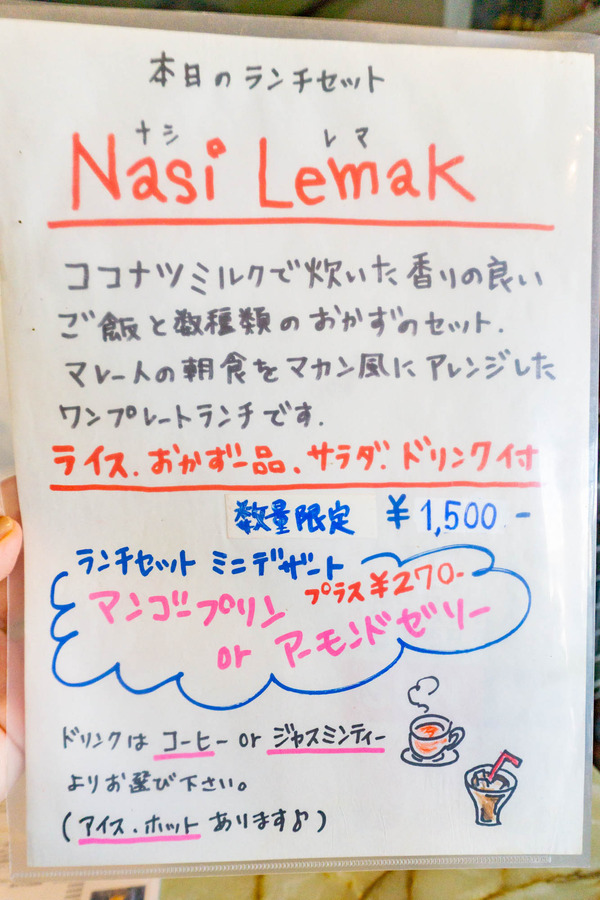 本日のランチセット
ナシ レマ
Nasi Lemak
ココナツミルクで炊いた香りの良い
ご飯と数種類のおかずのセット.
マレー人の朝食をマカン風にアレンジした
ワンプレートランチです.
ライス.おかず一品、サラダ.ドリンク付
数量限定 ¥1,500.-
ランチセット ミニデザート
プラス¥270-
マンゴープリン
or アーモンドゼリー
ドリンクは コーヒー or ジャスミンティー
よりお選び下さい。
(アイス.ホット あります♪)